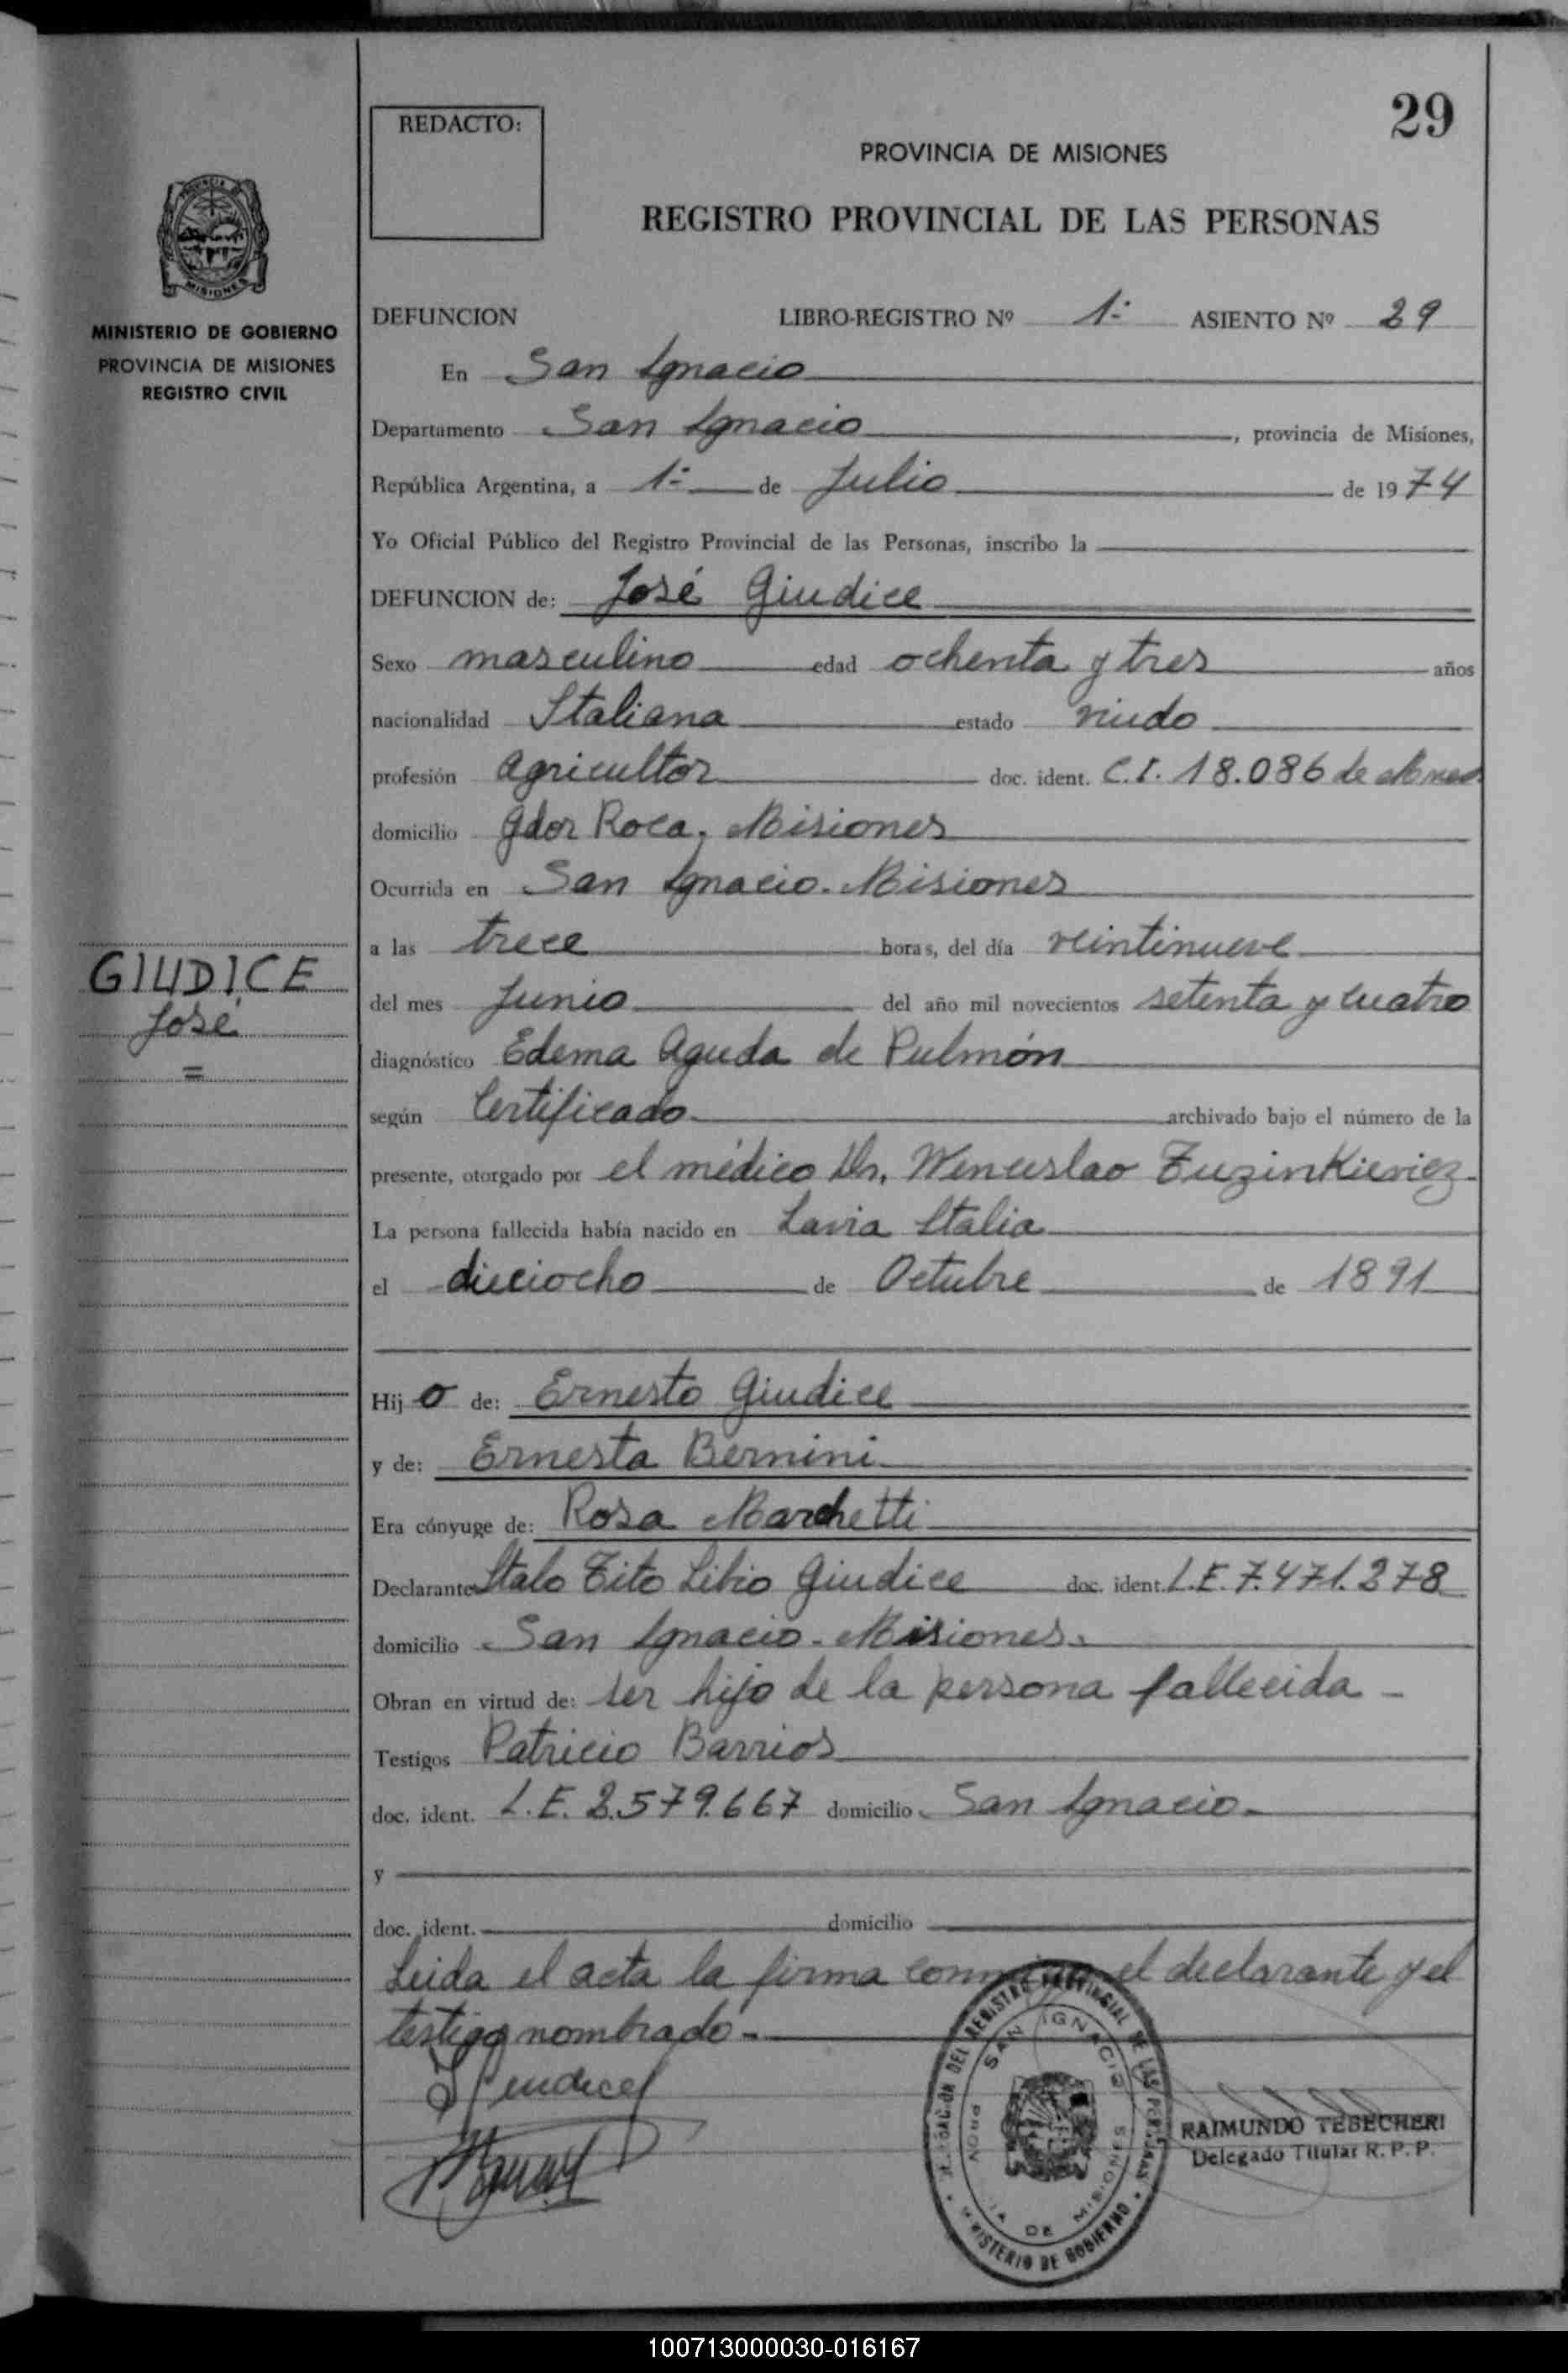 29
REDACTO:
PROVINCIA DE MISIONES
REGISTRO PROVINCIAL DE LAS PERSONAS
MISIONES
MINISTERIO DE GOBIERNO
PROVINCIA DE MISIONES
REGISTRO CIVIL
DEFUNCION LIBRO-REGISTRO Nº 1º ASIENTO Nº 29
En San Ignacio
Departamento San Ignacio, provincia de Misiones,
República Argentina, a 1º de Julio de 1974
Yo Oficial Público del Registro Provincial de las Personas, inscribo la
DEFUNCION de: José Giudice
Sexo masculino edad ochenta y tres años
nacionalidad Italiana estado viudo
profesión agricultor doc. ident. C.I. 18.086 de
domicilio Gdor Roca, Misiones
Ocurrida en San Ignacio. Misiones
a las trece horas, del día veintinueve
GIUDICE
José
=
del mes Junio del año mil novecientos setenta y cuatro
diagnóstico Edema Aguda de Pulmón
según Certificado archivado bajo el número de la
presente, otorgado por el médico Dr. Wenceslao Tuzinkieviez
La persona fallecida había nacido en Lavia Italia
el dieciocho de Octubre de 1891
Hijo de: Ernesto Giudice
y de: Ernesta Bernini
Era cónyuge de: Rosa Marchetti
Declarante Italo Tito Libio Giudice doc. ident. L.E. 7.471.278
domicilio San Ignacio - Misiones.
Obran en virtud de: ser hijo de la persona fallecida -
Testigos Patricio Barrios
doc. ident. L.E. 2.579.667 domicilio San Ignacio.
y
doc. ident. domicilio
Leida el acta la firma conmigo el declarante y el
testigo nombrado.-
Giudice
DELEGACION DEL REGISTRO PROVINCIAL DE LAS PERSONAS
SAN IGNACIO
PROVINCIA DE MISIONES
MINISTERIO DE GOBIERNO
RAIMUNDO TEBECHERI
Delegado Titular R. P. P.
100713000030-016167